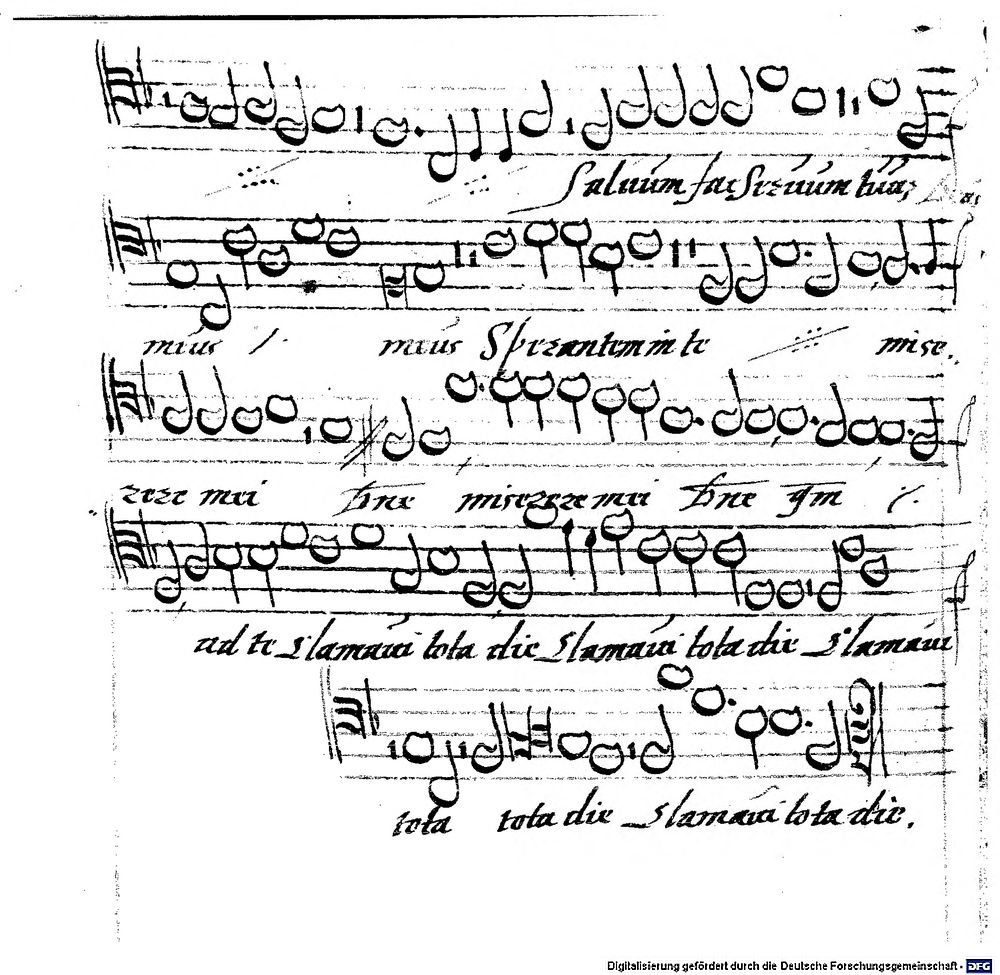 Saluum fac Seruum tuū
meus meus Sperantem in te mise
rere mei dne miserere mei dne qm
ad te Clamaui tota die Clamaui tota die Clamaui
tota tota die Clamaui tota die.
Digitalisierung gefördert durch die Deutsche Forschungsgemeinschaft - DFG